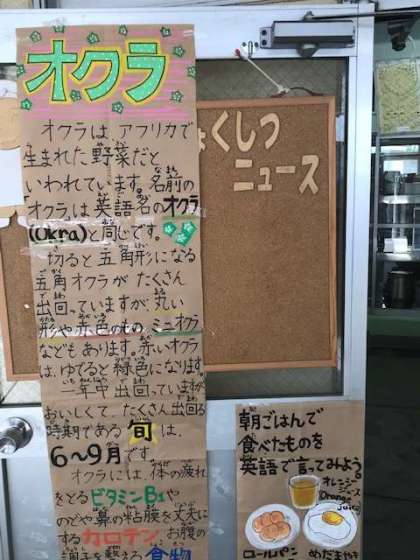 オクラ
オクラは アフリカで
生まれた 野菜だと
いわれています。名前の
「オクラ」は 英語名のオクラ
(Okra)と同じです。
切ると 五角形になる
五角オクラが たくさん
出回っていますが、丸い
形や赤色のもの、ミニオクラ
なども あります。赤いオクラ
は、ゆでると 緑色になります。
一年中 出回っていますが
おいしくて、たくさん出回る
時期である 旬 は、
6〜9月です。
オクラには、体の疲れ
をとるビタミンB1や
のどや鼻の粘膜を丈夫に
する カロテン、お腹の
調子を整える 食物
ょくしつ
ニュース
朝ごはんで
食べたものを
英語で言ってみよう。
オレンジジュース
Orange
juice
ロールパン
めだまやき